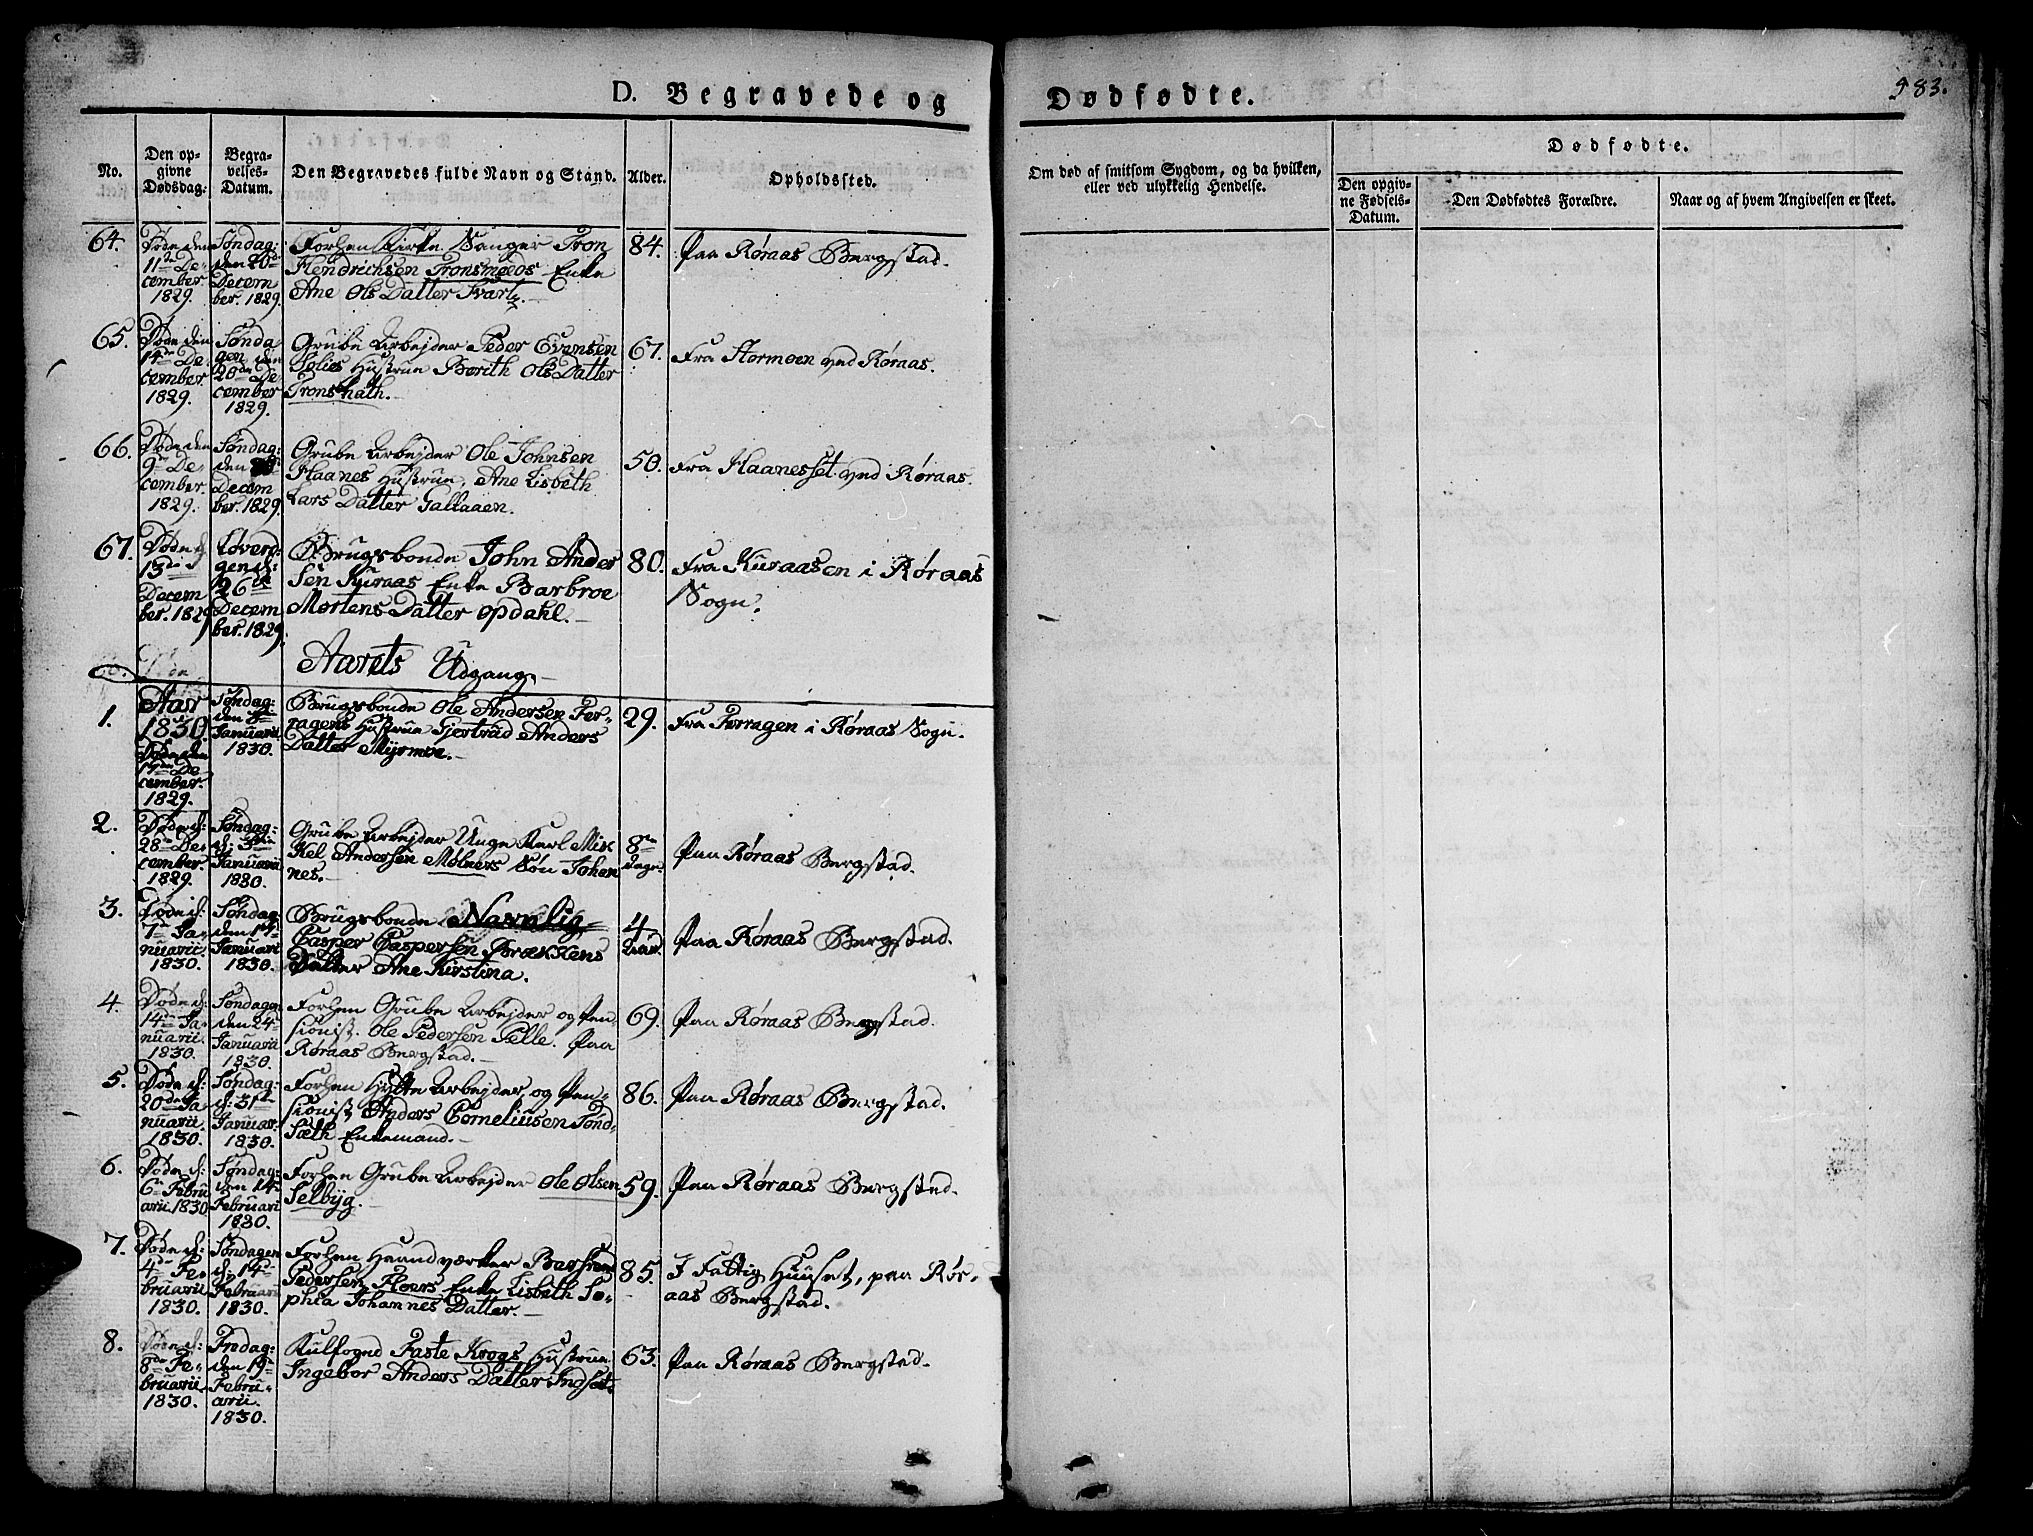 D. Begravede og
Dødfødte.
983.
No.
Den op-
givne
Dødsdag:
Begra-
velses-
Datum.
Den Begravedes fulde Navn og Stand.
Alder.
Opholdssted.
Om død af smitsom Sygdom, og da hvilken,
eller ved ulykkelig Hendelse.
Dødfødte.
Den opgiv-
ne Fødsels-
Datum.
Den Dødfødtes Forældre.
Naar og af hvem Angivelsen er skeet.
64.
Døde den
11te De-
cember
1829.
Søndag:
den 20de
Decem
ber. 1829.
Forhen Kirke Sanger Tron
Hendrichsen Tronsmoeds Enke
Ane Ols Datter Svart
84.
Paa Røraas Bergstad.
65.
Døde den
14de De-
cember
1829.
Sønda
gen den
20de De
cember
1829.
Grube Arbejder Peder Evensen
Solies Hustrue Berith Ols Datter
Tronshath.
67.
Fra Stormoen ved Røraas.
66.
Døde den
9de De-
cember.
1829.
Søndag:
den
Decem
ber. 1829.
Grube Arbejder Ole Johnsen
Haanes Hustrue, Ane Lisbeth
Lars Datter Gallaaen.
50.
Fra Haanesset ved Røraas.
67.
Døde d:
13de
Decem
ber. 1829
Løverd:
gen d:
26de
Decem
ber. 1829.
Brugsbonde John Ander
sen Kuraas Enke Barbroe
Mortens Datter Opdahl.
80.
Fra Kuraasen i Røraas
Sogn.
Aarets Udgang.
1.
Aar
1830.
Døde den
17de De
cember.
1829.
Søndag:
den 3de
Januarii
1830.
Brugsbonde Ole Andersen Fer-
ragens Hustrue Gjertrud Anders
Datter Myrmoe.
29.
Fra Ferragen i Røraas Sogn.
2.
Døde d:
28de De
cember
1829.
Søndag:
d: 3die
Januarii
1830.
Grube Arbejder Unge Karl Mik
kel Andersen Mølners Søn Johan
nes.
8te
dage.
Paa Røraas Bergstad.
3.
Døde d:
7de Ja-
nuarii.
1830.
Søndag
den 17de
Januari
1830.
Brugsbonde Navnlig
Casper Caspersen Brækkens
Datter Ane Kirstina.
4
Aar.
Paa Røraas Bergstad.
4.
Døde d:
14de Ja-
nuarii.
1830.
Søndagen
den 24de
Januarii
1830.
Forhen Grube Arbejder og Pen
sionist. Ole Pedersen Pelle. Paa
Røraas Bergstad.
69.
Paa Røraas Bergstad.
5.
Døde d:
20de Ja
nuarii.
1830.
Søndag:
d: 31te
Januar.
1830.
Forhen Hytte Arbejder, og Pen-
sionist Anders Corneliusen Sønd-
sæth Enkemand.
86.
Paa Røraas Bergstad.
6.
Døde d:
6te Febru
arii. 1830
Søndag:
den 14de
Februari
1830.
Forhen Grube Arbejder Ole Olsen
Selbyg.
59.
Paa Røraas Bergstad.
7.
Døde d:
4de Fe-
bruarii
1830.
Søndagen
d: 14de
Februarii
1830.
Forhen Haandværker
Pedersen Floers Enke Lisbeth So-
phia Johannes Datter.
85.
I Fattig Huuset, paa Rør-
aas Bergstad.
8.
Døde d:
8de Fe-
bruarii.
1830.
Fredag:
den 19de
Febru-
arii.
1830.
Kulfogd Faste Krogs Hustrue
Ingebor Anders Datter Indset.
63.
Paa Røraas Bergstad.